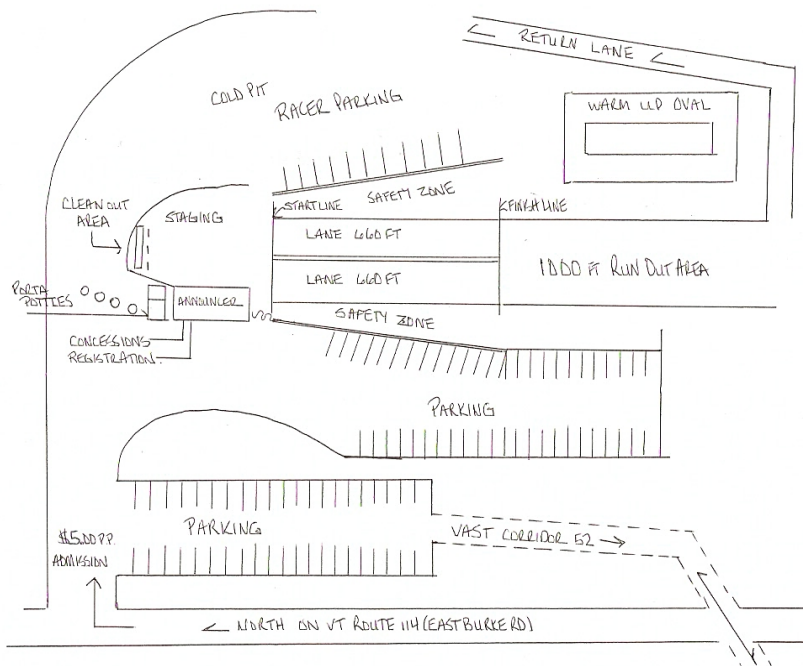 RETURN LANE
COLD PIT
RACER PARKING
WARM UP OVAL
SAFETY ZONE
CLEAN OUT
AREA
STAGING
STARTLINE
FINISHLINE
LANE 660 FT
LANE 660 FT
1000 FT RUN OUT AREA
PORTA
POTTIES
ANNOUNCER
SAFETY ZONE
CONCESSIONS
REGISTRATION
PARKING
PARKING
$5.00 P.P.
ADMISSION
VAST CORRIDOR 52
NORTH ON VT ROUTE 114 (EAST BURKE RD)